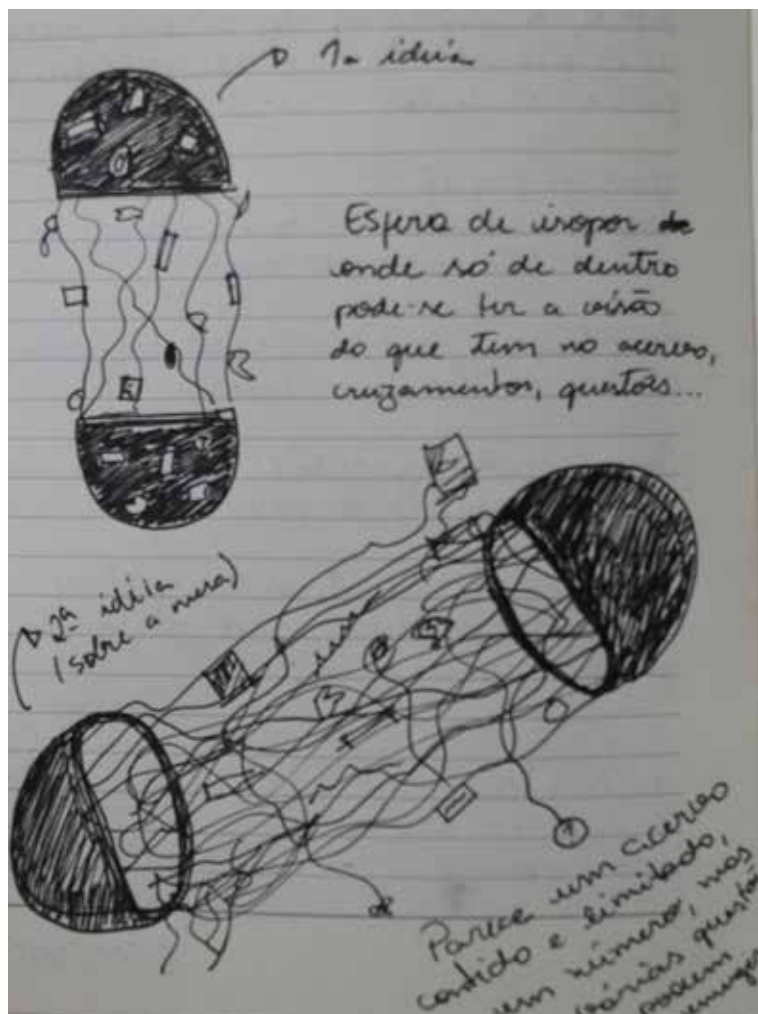 1a idéia
Esfera de isopor de
onde só de dentro
pode-se ter a visão
do que tem no acervo,
cruzamentos, questões...
2ª idéia
(sobre a mesa)
Parece um acervo
contido e limitado,
um número, mas
várias questõ
podem